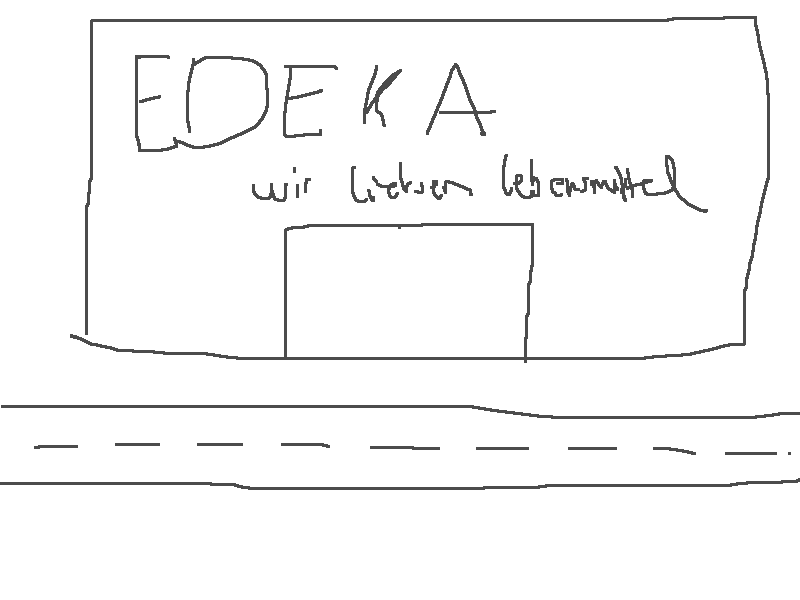 EDEKA
wir lieben lebensmittel